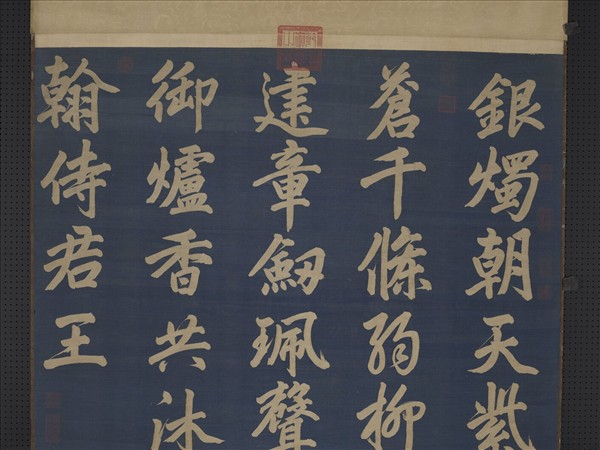 銀燭朝天紫
蒼千條弱柳
建章劒珮聲
御爐香共沐
翰侍君王